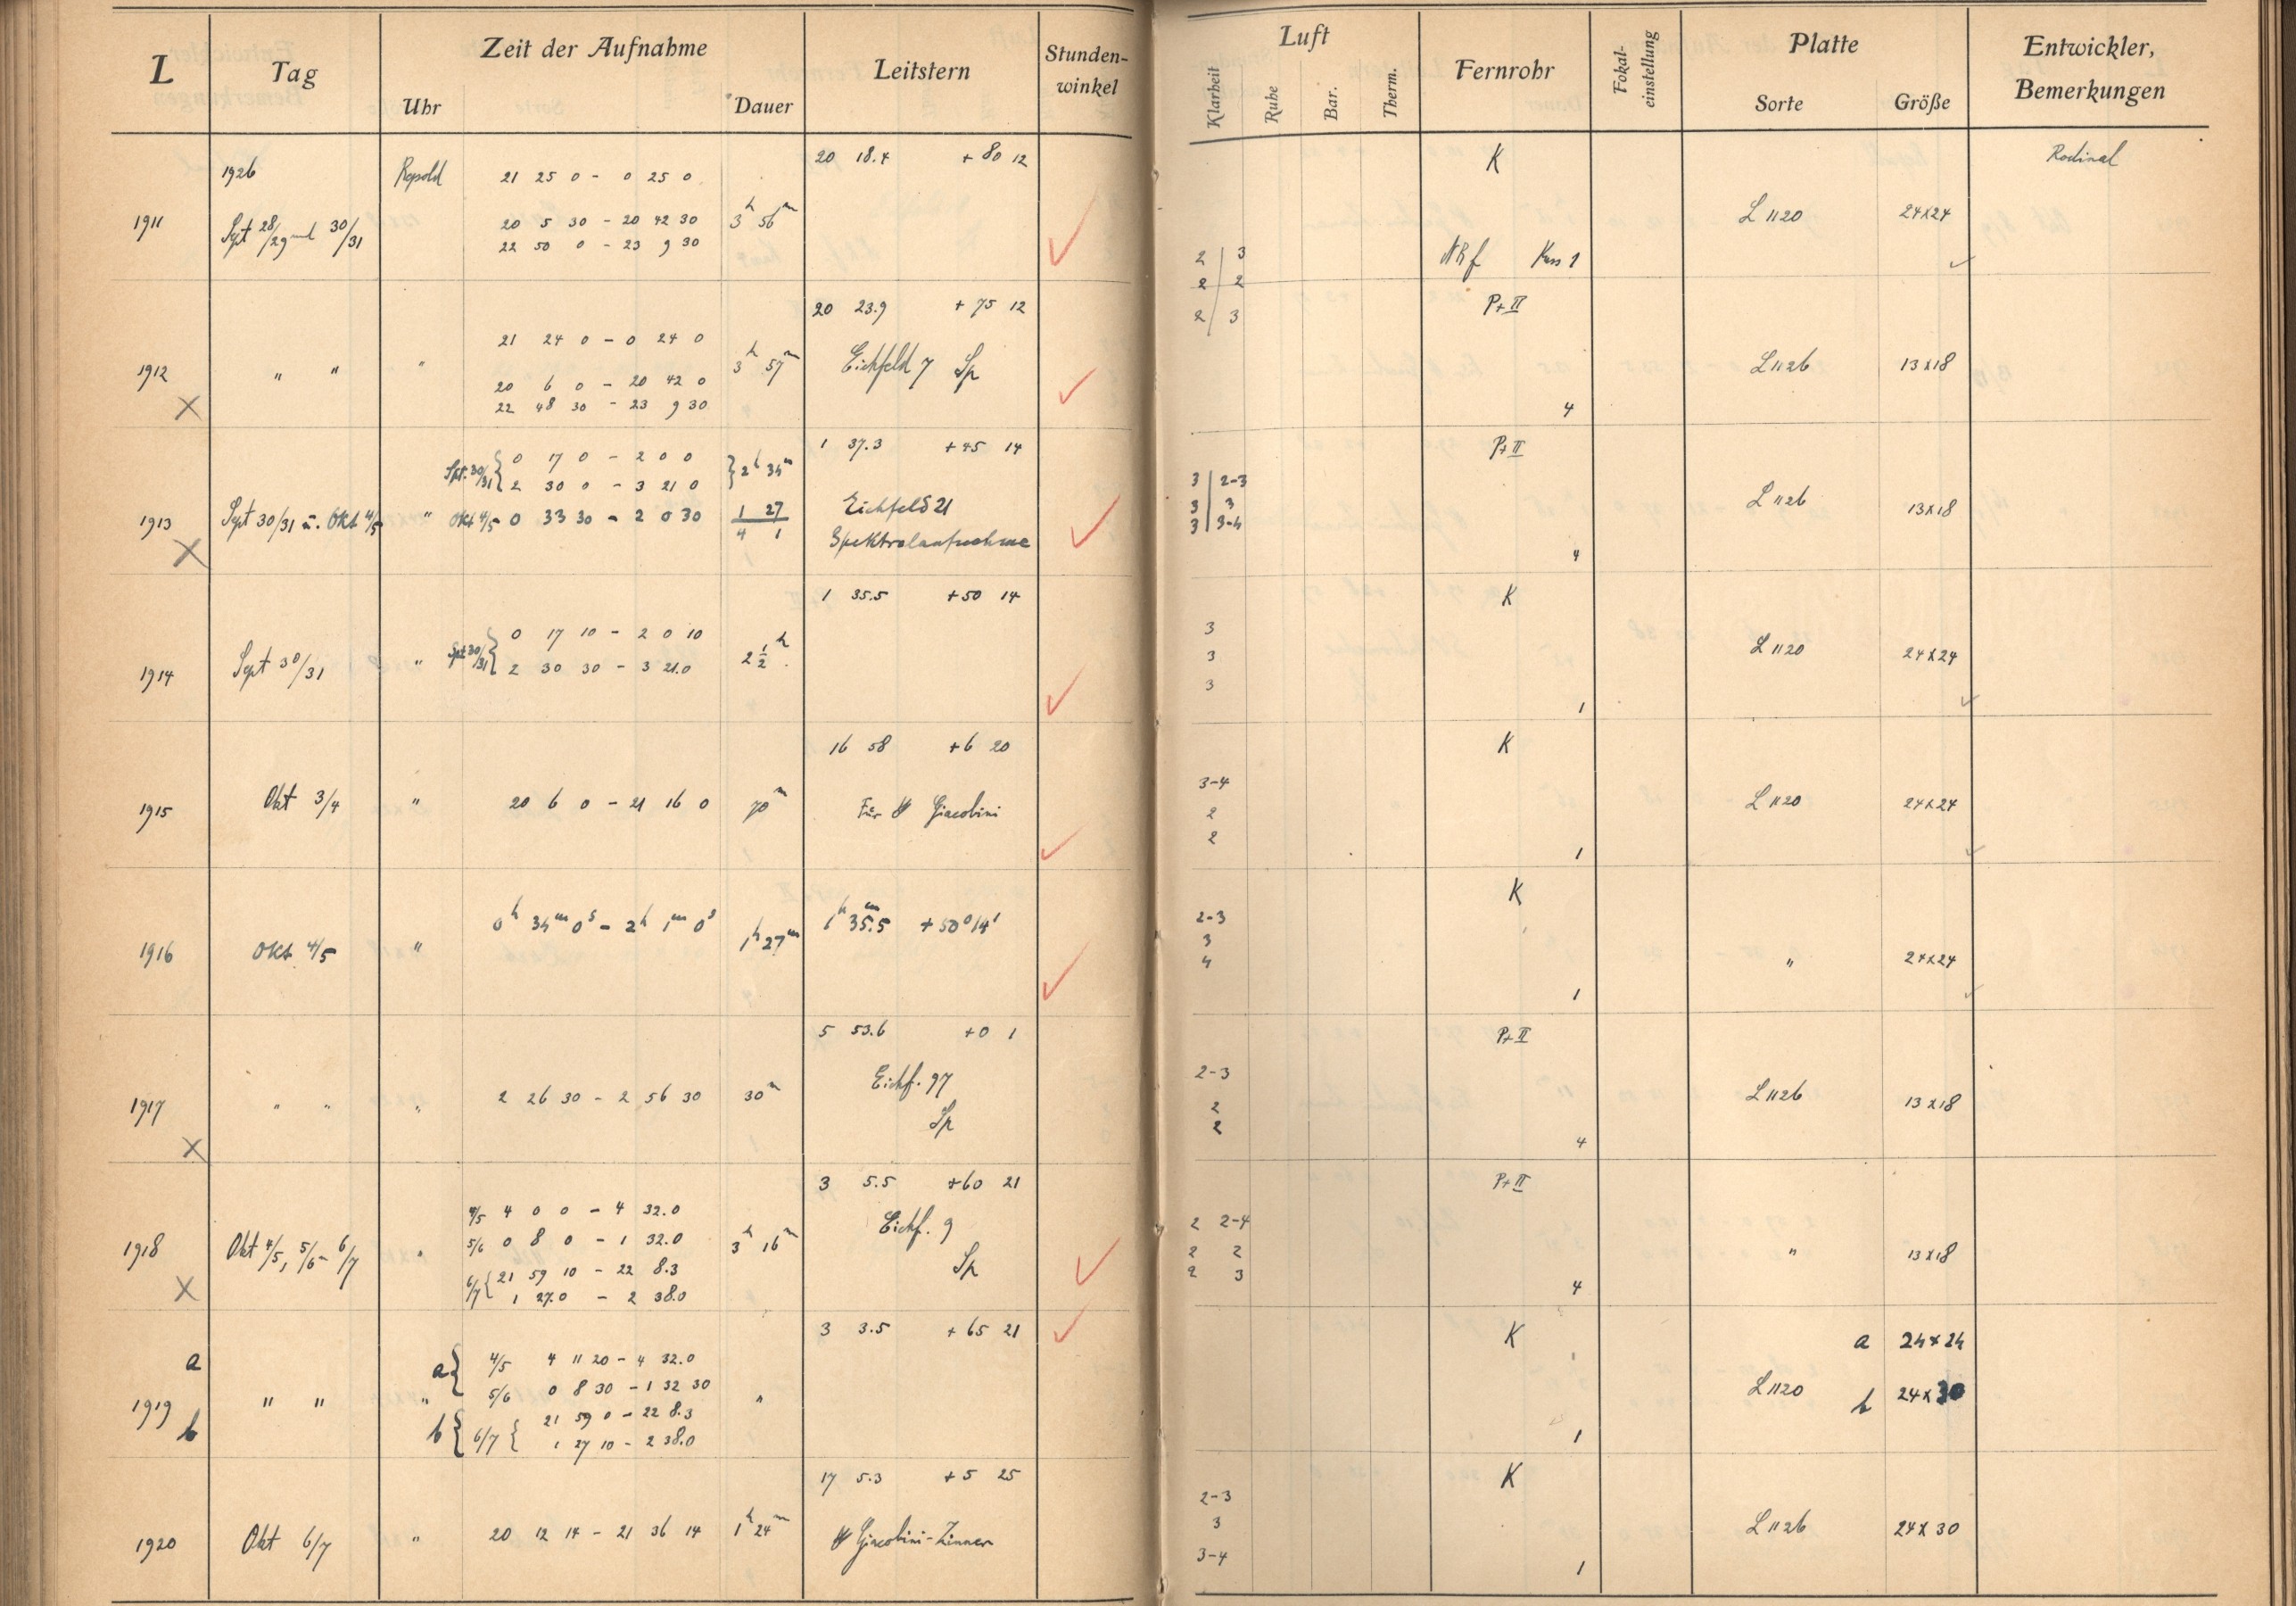 L Tag Zeit der Aufnahme Leitstern Stunden-winkel Luft Fernrohr Fokal-einstellung Platte Entwickler, Bemerkungen
Uhr Dauer Klarheit Ruhe Bar. Therm. Sorte Größe
1926 Repsold 21 25 0 - 0 25 0 20 18.4 + 80 12 K Rodinal
1911 Sept 28/29 und 30/31 20 5 30 - 20 42 30 3h 56m L 1120 24x24
22 50 0 - 23 9 30 2 | 3 Kass 1
2 | 2
20 23.9 + 75 12 P+II
21 24 0 - 0 24 0 2 | 3
1912 " " " 20 6 0 - 20 42 0 3h 57m Eichfeld 7 Sp L 1126 13x18
X 22 48 30 - 23 9 30 4
1 37.3 + 45 14 P+II
Spt. 30/31 { 0 17 0 - 2 0 0 } 2h 34m 3 | 2-3
2 30 0 - 3 21 0
1913 Sept 30/31 u. Okt 4/5 " Okt 4/5 0 33 30 - 2 0 30 1 27 Eichfeld 21 3 | 3 L 1126 13x18
X 4 1 Spektralaufnahme 3 | 3-4 4
1 35.5 + 50 14 K
Spt 30/31 { 0 17 10 - 2 0 10 3
1914 Sept 30/31 " 2 30 30 - 3 21.0 2 1/2 h 3 L 1120 24x24
3 1
16 58 + 6 20 K
3-4
1915 Okt 3/4 " 20 6 0 - 21 16 0 70m Für ☄ Giacobini 2 L 1120 24x24
2 1
K
1916 Okt 4/5 " 0h 34m 0s - 2h 1m 0s 1h 27m 1h 35.5m + 50° 14' 2-3 " 24x24
3
4 1
5 53.6 + 0 1 P+II
2-3
1917 " " " 2 26 30 - 2 56 30 30m Eichf. 97 2 L 1126 13x18
X Sp 2 4
3 5.5 + 60 21 P+II
4/5 4 0 0 - 4 32.0
1918 Okt 4/5, 5/6 - 6/7 " 5/6 0 8 0 - 1 32.0 3h 16m Eichf. 9 2 2-4 " 13x18
6/7 { 21 59 10 - 22 8.3 Sp 2 2
X 1 27.0 - 2 38.0 2 3 4
3 3.5 + 65 21 K
a a { 4/5 4 11 20 - 4 32.0 a 24x24
1919 " " " 5/6 0 8 30 - 1 32 30 " L 1120 b 24x30
b b { 6/7 { 21 59 0 - 22 8.3
1 27 10 - 2 38.0 1
17 5.3 + 5 25 K
2-3
1920 Okt 6/7 " 20 12 14 - 21 36 14 1h 24m ☄ Giacobini-Zinner 3 L 1126 24x30
3-4 1